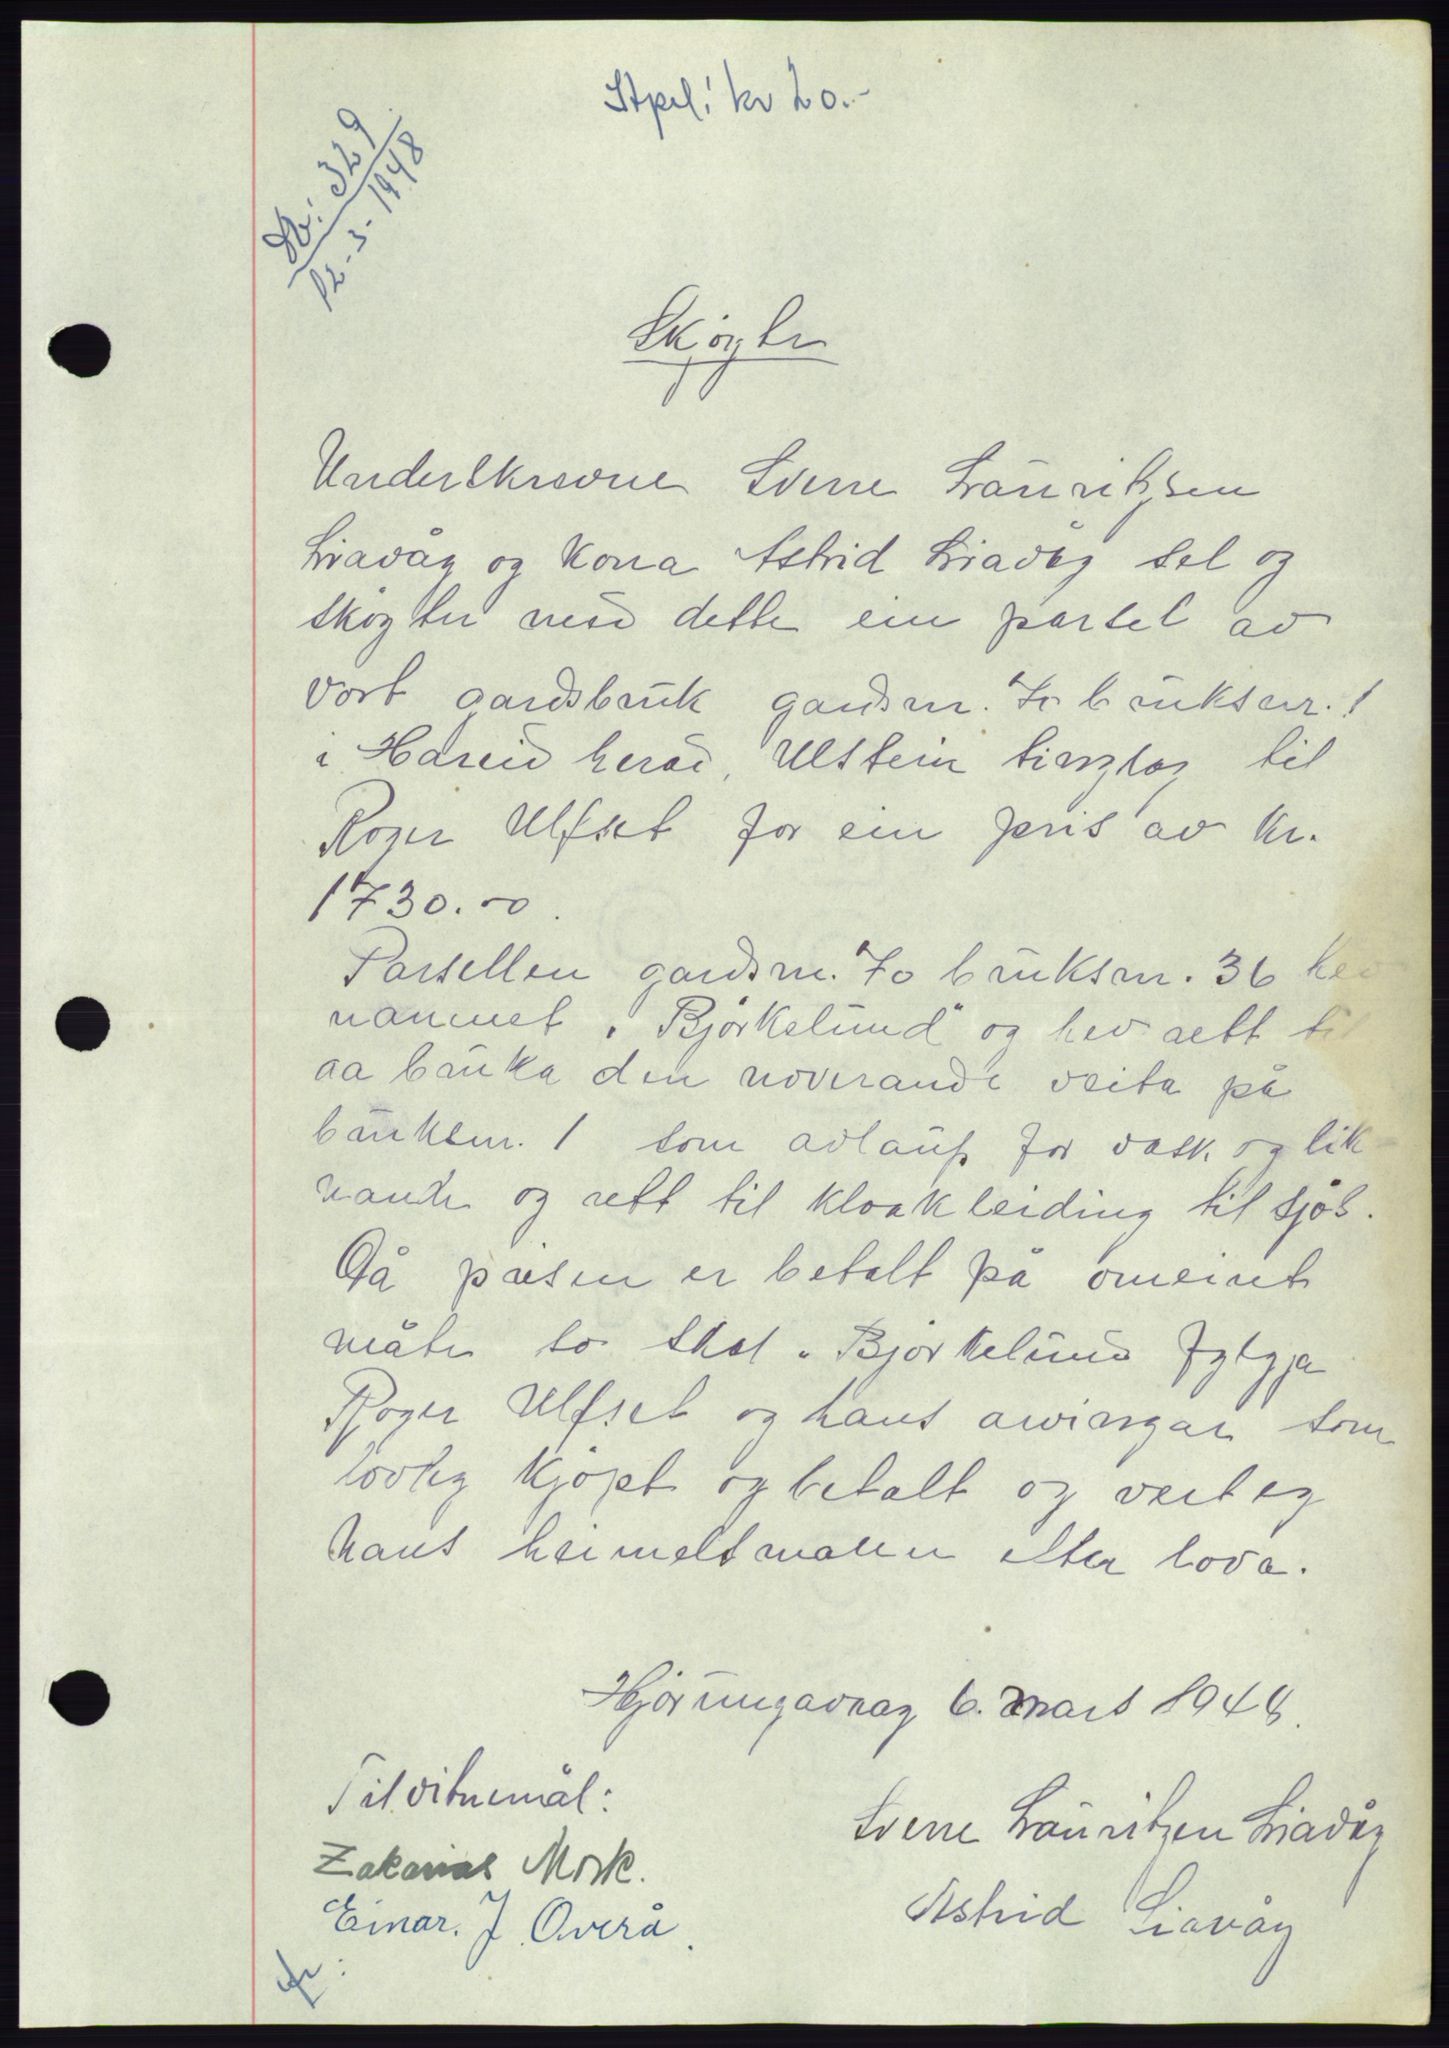 Stpel: kr 20.-
Nr: 329
12-3-1948
Skøyte
Underskrevne Sverre Lauritzsen
Liavåg og kona Astrid Liavåg sel og
skøyter med dette ein parsel av
vort gardsbruk gardsnr. 70 bruksnr. 1
i Hareid herad, Ulstein tinglag til
Roger Ulfset for ein pris av kr.
1730.00.
Parsellen gardsnr. 70 bruksnr. 36 hev
namnet "Bjørkelund" og hev rett til
aa bruka den noverande veita på
bruksnr. 1 som avlaup for vask og lik-
nande og rett til kloakleiding til sjøs.
Då prisen er betalt på omeint
måte so skal "Bjørkelund fylgja
Roger Ulfset og hans arvingar som
lovleg kjøpt og betalt og vert eg
hans heimelsmann etter lova.
Hjørungavaag 6. mars 1948.
Til vitnemål:
Zakarias Mork.
Einar. J. Overå.
Sverre Lauritzen Liavåg
Astrid Liavåg